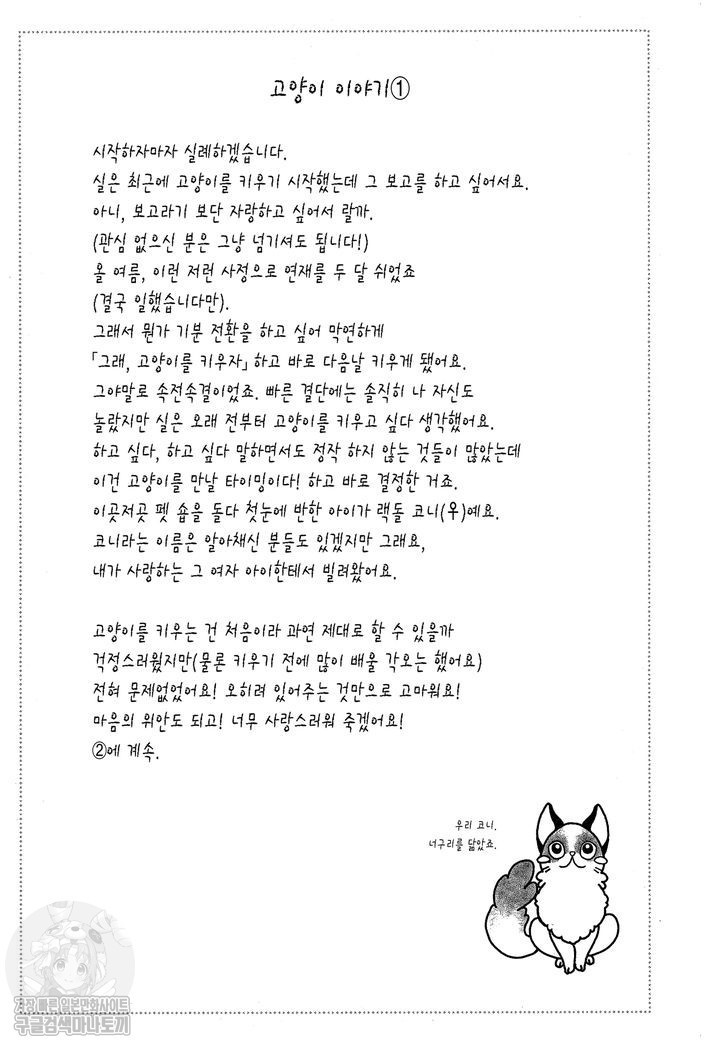 고양이 이야기①
시작하자마자 실례하겠습니다.
실은 최근에 고양이를 키우기 시작했는데 그 보고를 하고 싶어서요.
아니, 보고라기 보단 자랑하고 싶어서 랄까.
(관심 없으신 분은 그냥 넘기셔도 됩니다!)
올 여름, 이런 저런 사정으로 연재를 두 달 쉬었죠
(결국 일했습니다만).
그래서 뭔가 기분 전환을 하고 싶어 막연하게
「그래, 고양이를 키우자」 하고 바로 다음날 키우게 됐어요.
그야말로 속전속결이었죠. 빠른 결단에는 솔직히 나 자신도
놀랐지만 실은 오래 전부터 고양이를 키우고 싶다 생각했어요.
하고 싶다, 하고 싶다 말하면서도 정작 하지 않는 것들이 많았는데
이건 고양이를 만날 타이밍이다! 하고 바로 결정한 거죠.
이곳저곳 펫 숍을 돌다 첫눈에 반한 아이가 랙돌 코니(우)예요.
코니라는 이름은 알아채신 분들도 있겠지만 그래요,
내가 사랑하는 그 여자 아이한테서 빌려왔어요.
고양이를 키우는 건 처음이라 과연 제대로 할 수 있을까
걱정스러웠지만(물론 키우기 전에 많이 배울 각오는 했어요)
전혀 문제없었어요! 오히려 있어주는 것만으로 고마워요!
마음의 위안도 되고! 너무 사랑스러워 죽겠어요!
②에 계속.
우리 코니.
너구리를 닮았죠.
가장 빠른 일본만화사이트
구글검색마나토끼